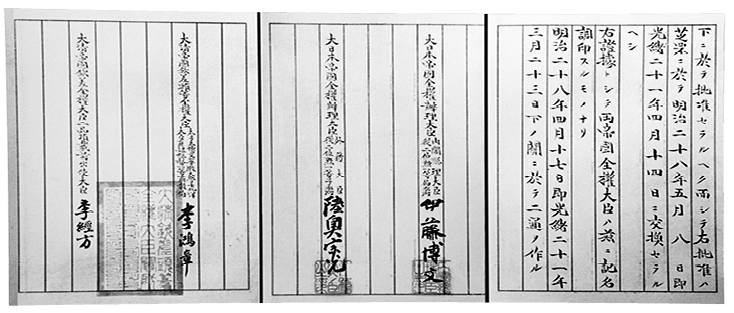 下ニ於テ批准セラルヘク而シテ右批准ハ
芝罘ニ於テ明治二十八年五月八日即
光緒二十一年四月十四日ニ交換セラル
ヘシ
右證據トシテ兩帝國全權大臣ハ茲ニ記名
調印スルモノナリ
明治二十八年四月十七日即光緒二十一年
三月二十三日下ノ關ニ於テ二通ヲ作ル
大日本帝國全權辦理大臣內閣總理大臣從二位勳一等伯爵伊藤博文
大日本帝國全權辦理大臣外務大臣從二位勳一等子爵陸奧宗光
大清帝國欽差頭等全權大臣李鴻章
大清帝國欽差全權大臣二品頂戴前出使大臣李經方